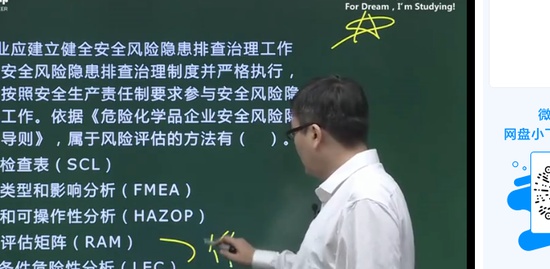 For Dream , I'm Studying!
业应建立健全安全风险隐患排查治理工作
安全风险隐患排查治理制度并严格执行，
按照安全生产责任制要求参与安全风险隐
工作。依据《危险化学品企业安全风险隐
导则》，属于风险评估的方法有（ ）。
检查表（SCL）
类型和影响分析（FMEA）
和可操作性分析（HAZOP）
评估矩阵（RAM）
条件危险性分析（LEC）
微
网盘小